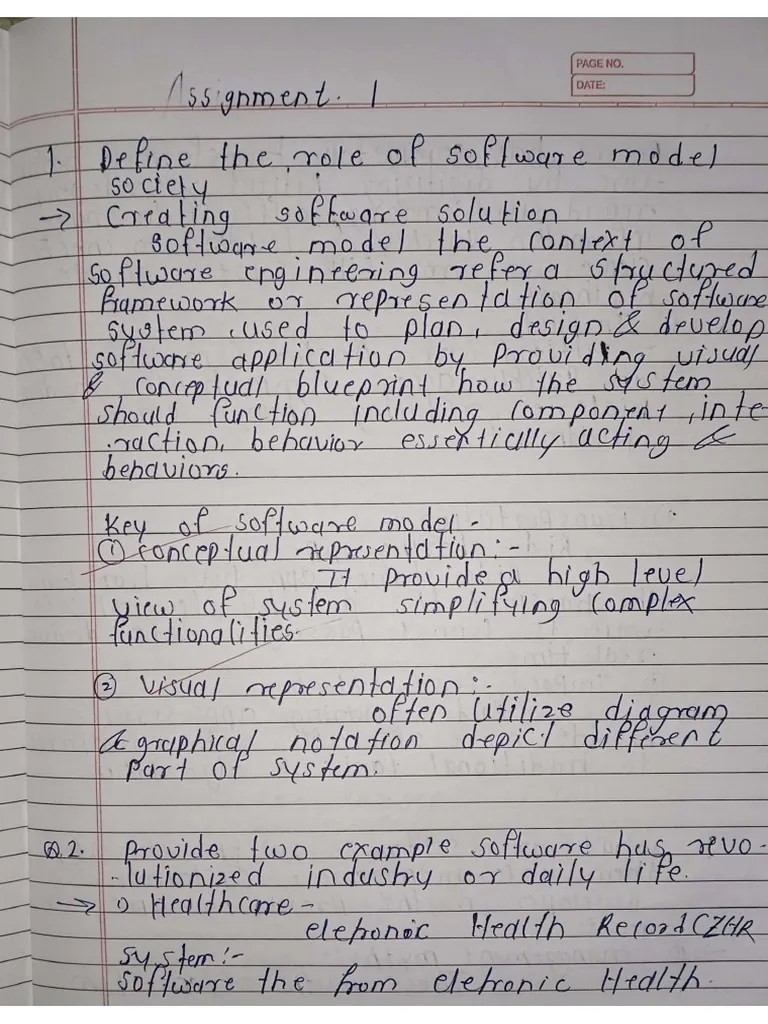 PAGE NO.
DATE:
Assignment. 1
1. Define the role of software model
society
→ Creating software solution
software model the context of
software engineering refer a structured
framework or representation of software
system, used to plan, design & develop
software application by providing visual
& conceptual blueprint how the system
should function including component, inte
raction, behavior essextically acting &
behaviors.
Key of software model -
① conceptual representation :-
It provide a high level
view of system simplifying complex
functionalities.
② visual representation :-
often utilize diagram
& graphical notation depict different
part of system.
Q.2. Provide two example software has revo-
-lutionized industry or daily life.
→ 1) Healthcare -
eletronic Health Record CZHR
system :-
software the from eletronic Health.